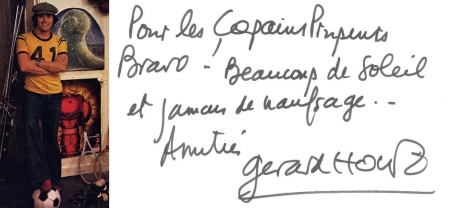 41
Pour les Copains Pimpents
Bravo - Beaucoup de Soleil
et jamais de naufrage . -
Amitiés
gerard HOLTZ